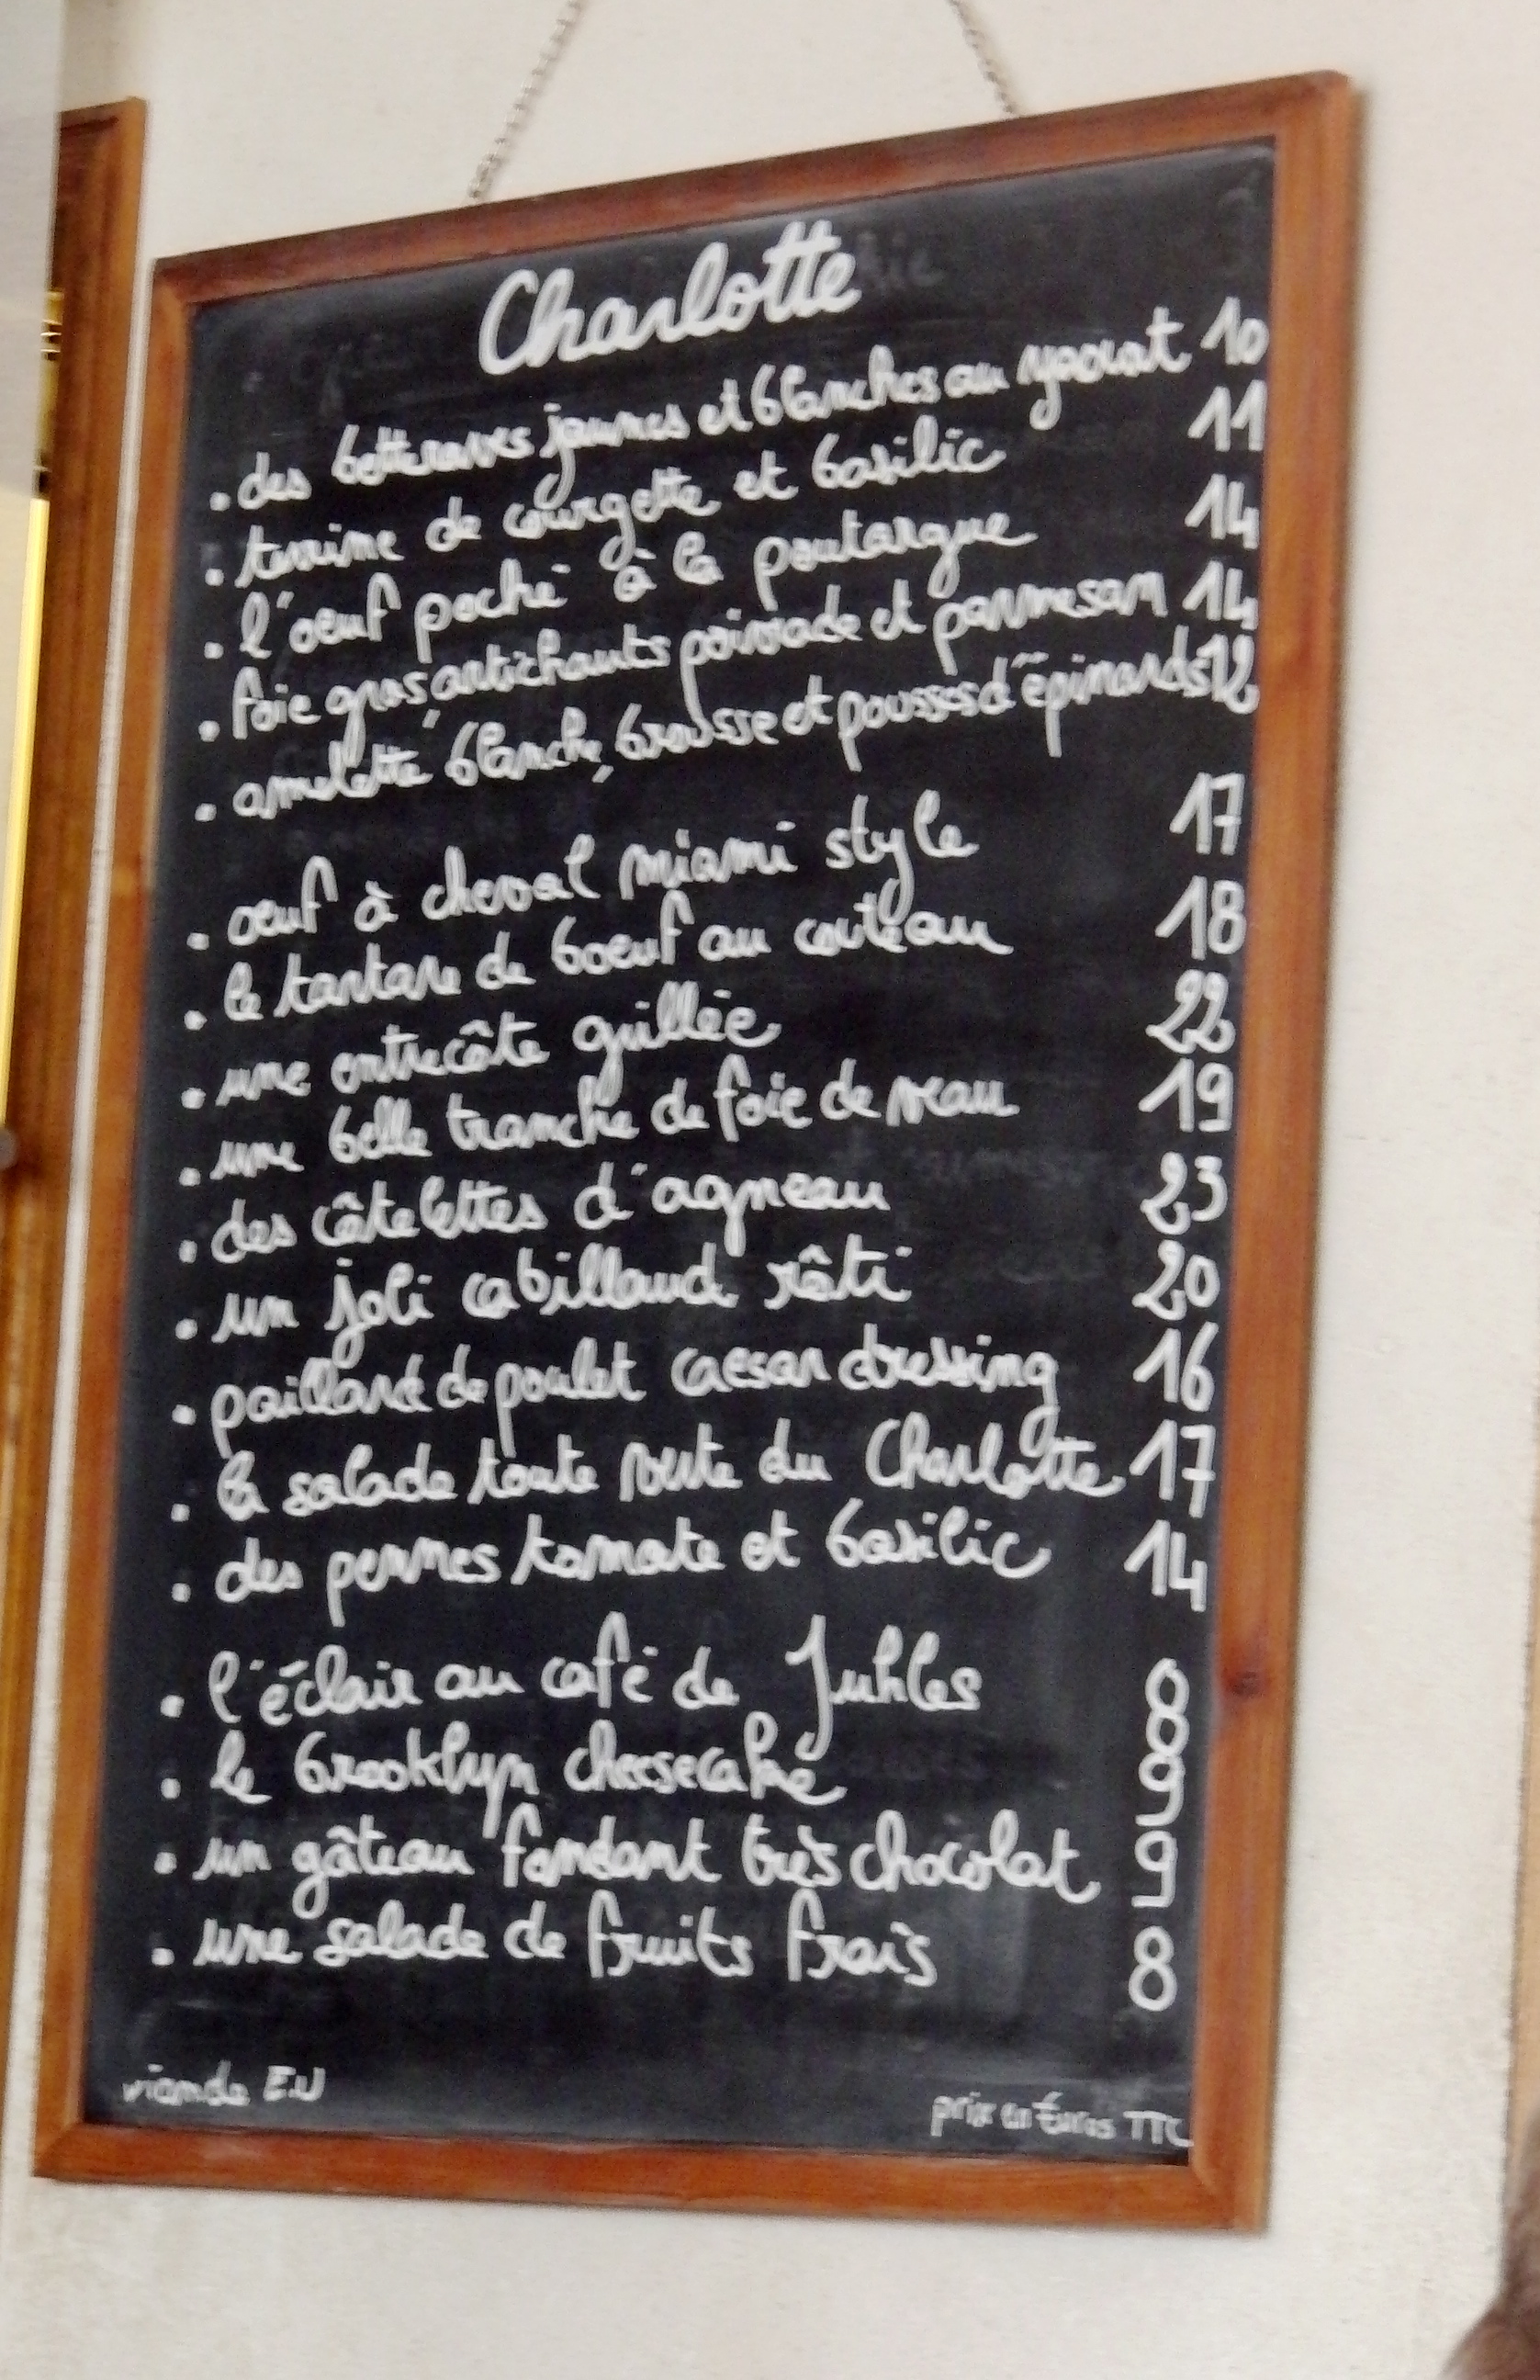 Charlotte
. des betteraves jaunes et blanches au yaourt 10
. terrine de courgette et basilic 11
. l'oeuf poché à la poutargue 14
. foie gras, artichauts poivrade et parmesan 14
. omelette blanche, brousse et pousses d'épinards 12
. oeuf à cheval miami style 17
. le tartare de boeuf au couteau 18
. une entrecôte grillée 22
. une belle tranche de foie de veau 19
. des côtelettes d'agneau 23
. un joli cabillaud rôti 20
. paillard de poulet caesar dressing 16
. la salade toute verte du Charlotte 17
. des pennes tomate et basilic 14
. l'éclair au café de Juhles 8
. le brooklyn cheesecake 9
. un gâteau fondant très chocolat 9
. une salade de fruits frais 8
viande E.U
prix en Euros TTC